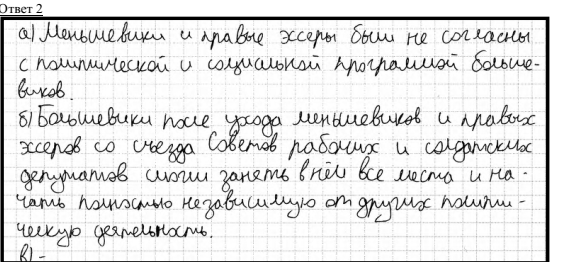 Ответ 2
а) Меньшевики и правые эссеры были не согласны
с политической и социальной программой больше-
виков.
б) Большевики после ухода меньшевиков и правых
эссеров со съезда Советов рабочих и солдатских
депутатов смогли занять в нём все места и на-
чать полностью независимую от других полити-
ческую деятельность.
в) -